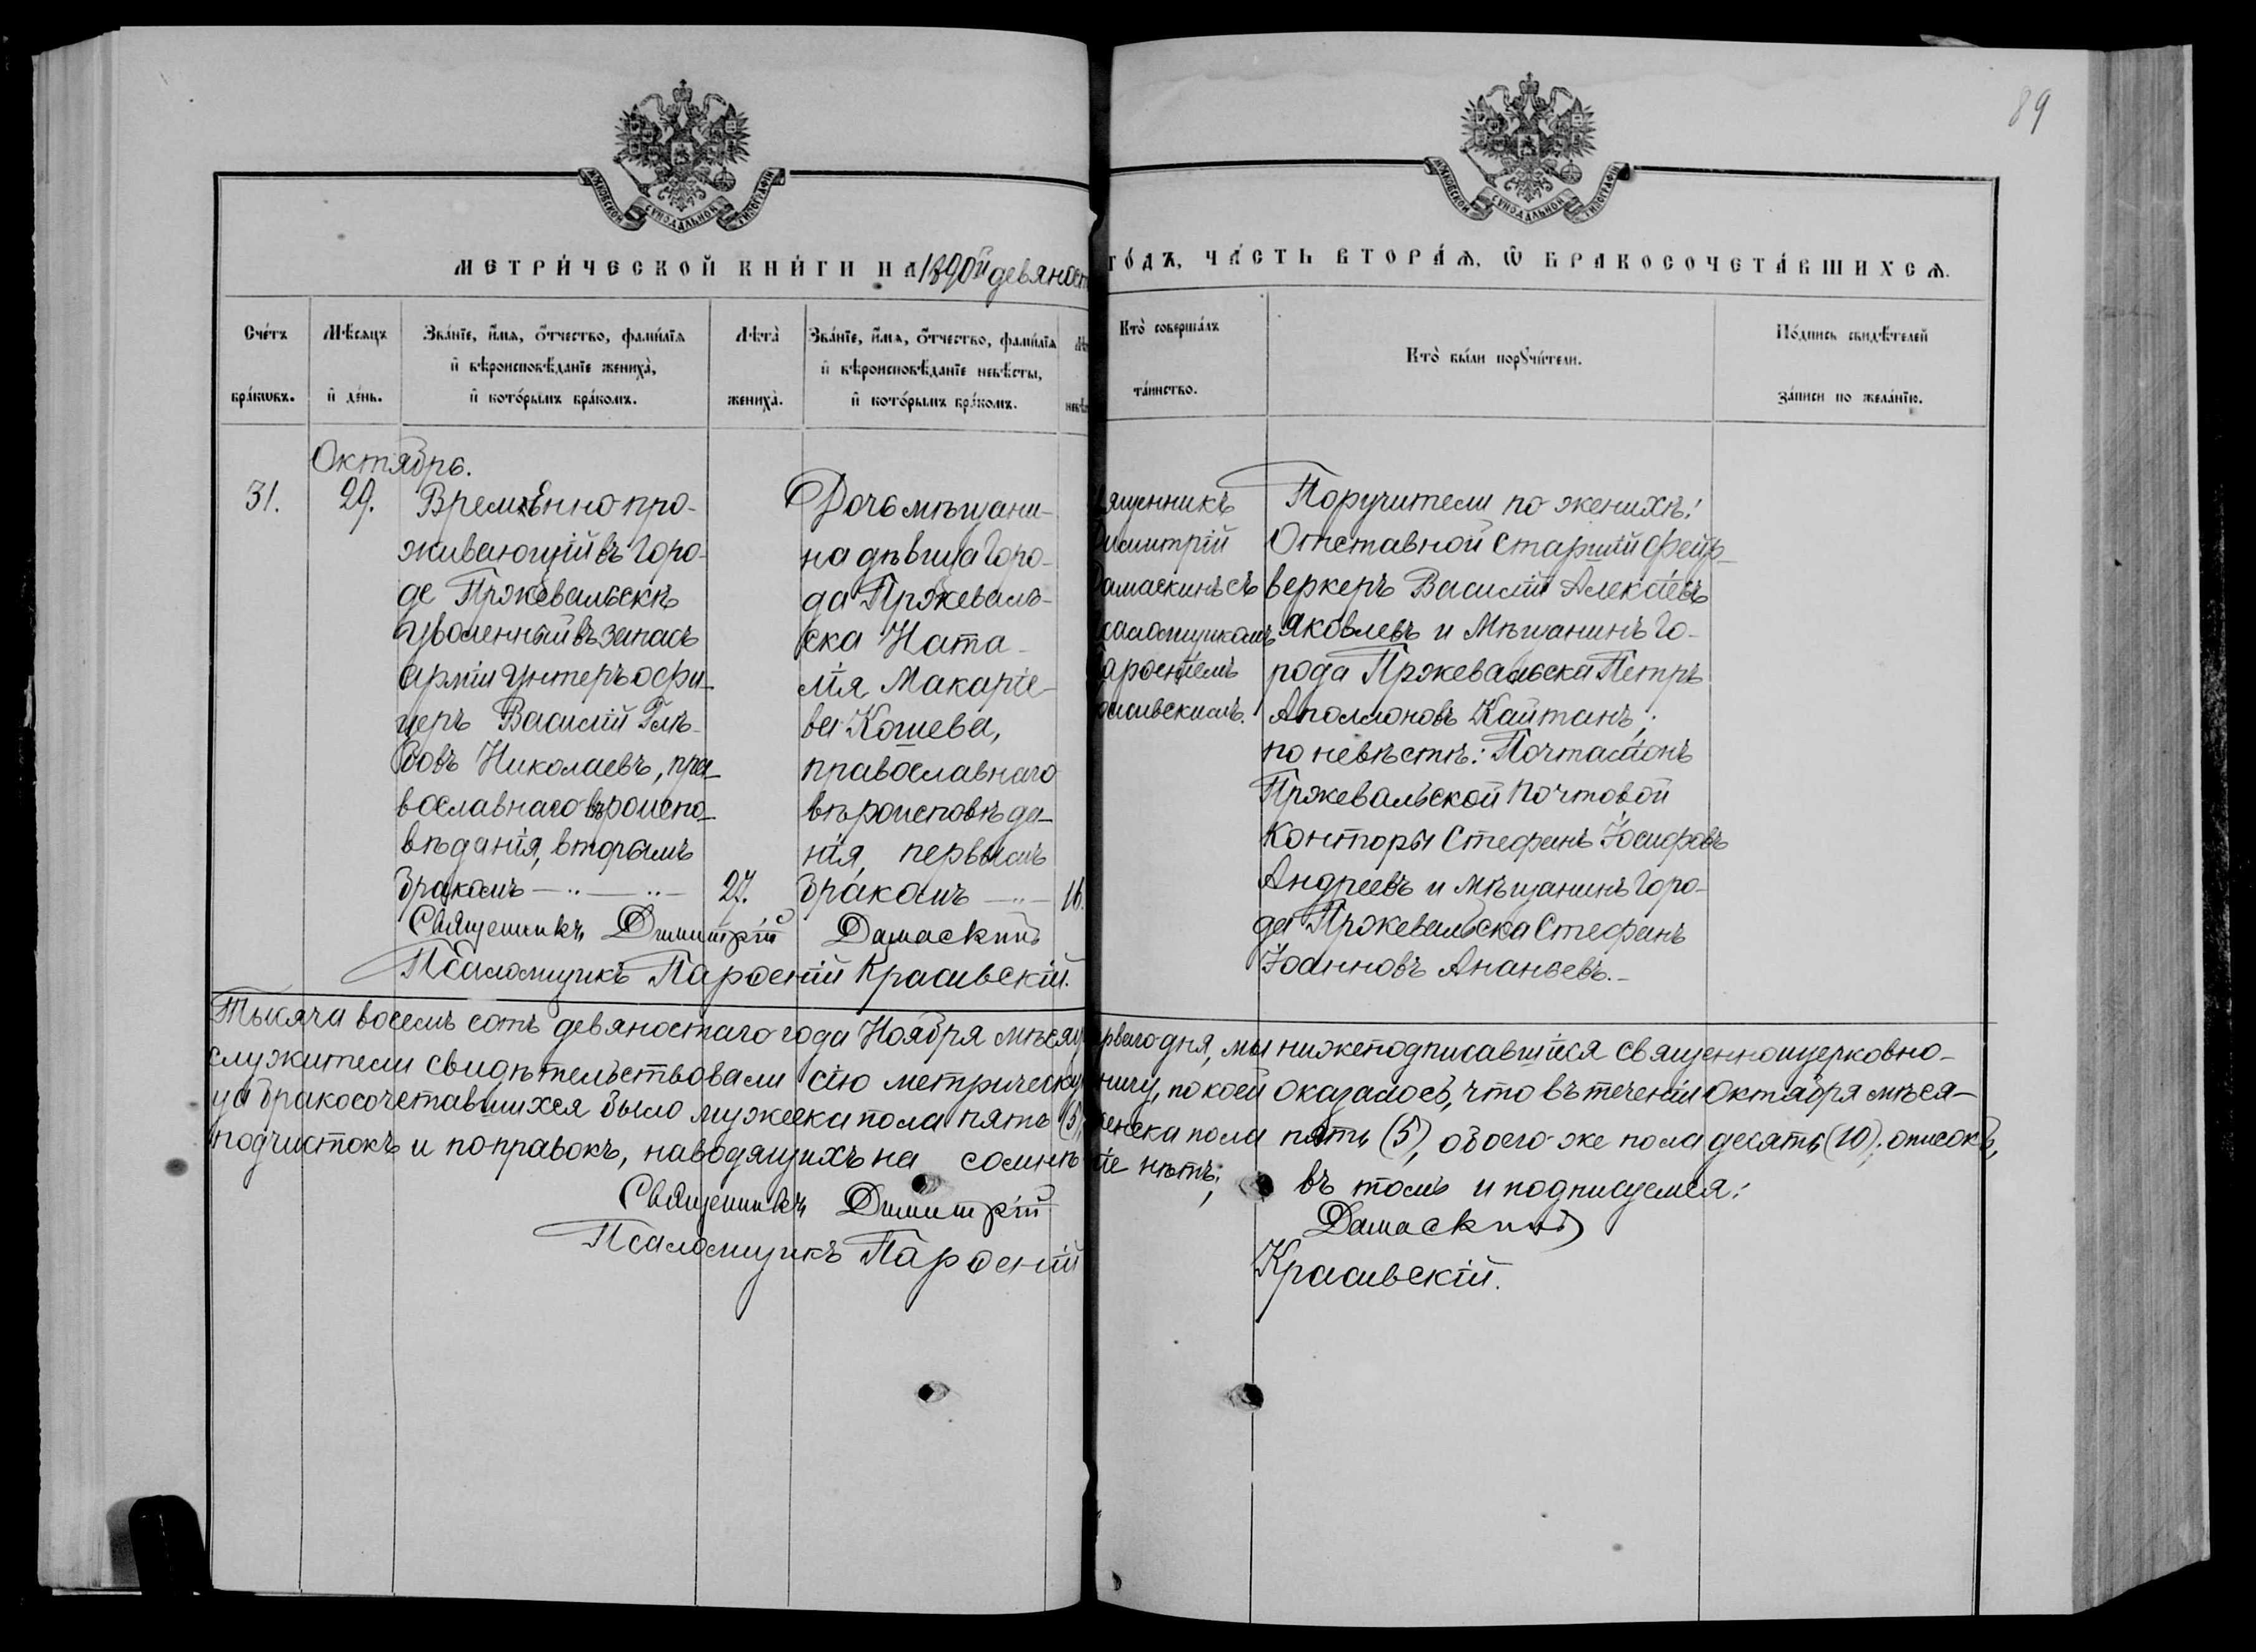 89
МОСКОВСКОЙ СѴНОДАЛЬНОЙ ТИПОГРАФІИ
МОСКОВСКОЙ СѴНОДАЛЬНОЙ ТИПОГРАФІИ
МЕТРИ́ЧЕСКОЙ КНИ́ГИ НА 1890й девяност
ГО́ДЪ, ЧА́СТЬ ВТОРА́Ѧ, Ѽ БРАКОСОЧЕТА́ВШИХСѦ.
Сче́тъ
бра́кѡвъ.
Мѣ́сяцъ
и҆ де́нь.
Зва́нїе, и҆́мѧ, о҆́тчество, фами́лїѧ
и҆ вѣроисповѣ́данїе жениха̀,
и҆ кото́рымъ бра́комъ.
Лѣта̀
жениха̀.
Зва́нїе, и҆́мѧ, о҆́тчество, фами́лїѧ
и҆ вѣроисповѣ́данїе невѣ́сты,
и҆ кото́рымъ бра́комъ.
Кто̀ соверша́лъ
та́инство.
Кто̀ бы́ли порꙋчи́тели.
По́дпись свидѣ́телей
за́писи по жела́нїю.
Октябрь.
31.
29.
Временно про-
живающій въ Горо-
де Пржевальскѣ
уволенный въ запасъ
арміи Унтеръ офи-
церъ Василій Глѣ-
бовъ Николаевъ, пра-
вославнаго вѣроиспо-
вѣданія, вторымъ
бракомъ
27.
Дочь мѣщани-
на дѣвица Горо-
да Пржеваль-
ска Ната-
лія Макаріе-
ва Кошева,
православнаго
вѣроисповѣда-
нія, первымъ
бракомъ
16.
ященникъ
имитрій
амаскинъ съ
саломщикомъ
арѳеніемъ
расивскимъ.
Поручители по женихѣ:
Отставной старшій Фейр-
веркеръ Василій Алексѣевъ
Яковлевъ и Мѣщанинъ Го-
рода Пржевальска Петръ
Аполлоновъ Кайтанъ;
по невѣстѣ: Почталіонъ
Пржевальской Почтовой
Конторы Стефанъ Іосифовъ
Андреевъ и мѣщанинъ Горо-
да Пржевальска Стефанъ
Іоанновъ Ананьевъ.-
Священникъ Димитрій Дамаскинъ
Псаломщикъ Парѳеній Красивскій.
Тысяча восемь сотъ девяностаго года Ноября мѣсяц рваго дня, мы нижеподписавшіися священноцерковно-
служители свидѣтельствовали сію метрическу нигу, по коей оказалось, что въ теченіи Октября мѣся-
ца бракосочетавшихся было мужеска пола пять (5), енска пола пять (5), обоего же пола десять (10); описокъ,
подчистокъ и поправокъ, наводящихъ на сомнѣ іе нѣтъ; въ томъ и подписуемся:
Священникъ Димитрій Дамаскинъ
Псаломщикъ Парѳеній Красивскій.